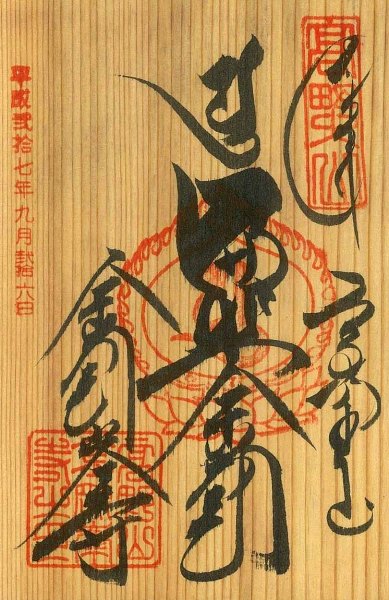 高野山
奉拝
高野山
遍照金剛
金剛峯寺
平成弐拾七年九月弐拾六日